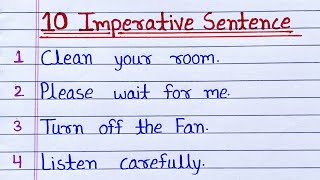 10 Imperative Sentence
1 Clean your room.
2 Please wait for me.
3 Turn off the Fan.
4 Listen carefully.